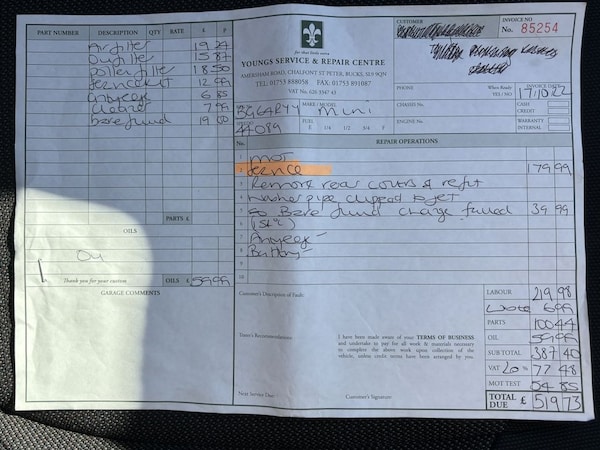 PART NUMBER DESCRIPTION QTY RATE £ P
Air filter 19 24
Oil filter 15 87
pollen filter 18 50
12 99
6 85
7 99
19 00
PARTS £
OILS
Oil
Thank you for your custom
OILS £ 59 99
GARAGE COMMENTS
for that little extra
YOUNGS SERVICE & REPAIR CENTRE
AMERSHAM ROAD, CHALFONT ST PETER, BUCKS, SL9 0QN
TEL: 01753 888058 FAX: 01753 891087
VAT No. 626 5547 43
CUSTOMER
INVOICE NO
No. 85254
PHONE
When Ready
TEL / NO
INVOICE DATE
17/10/22
MAKE / MODEL
mini
CHASSIS No.
CASH
CREDIT
44089
FUEL
E 1/4 1/2 3/4 F
ENGINE No.
WARRANTY
INTERNAL
No. REPAIR OPERATIONS
1 MOT
2 Service 179 99
3 Remove rear covers & refit
4 Washer pipe clipped to jet
5 39 99
6
7
8 Battery -
9
10
Customer's Discription of Fault:
Tester's Recommendations:
I have been made aware of your TERMS OF BUSINESS
and undertake to pay for all work & materials necessary
to complete the above work upon collection of the
vehicle, unless credit terms have been arranged by you.
Next Service Due
Customer's Signature:
LABOUR 219 98
Waste 6 99
PARTS 100 44
OIL 59 99
SUB TOTAL 387 40
VAT 20 % 77 48
MOT TEST 54 85
TOTAL DUE £ 519 73